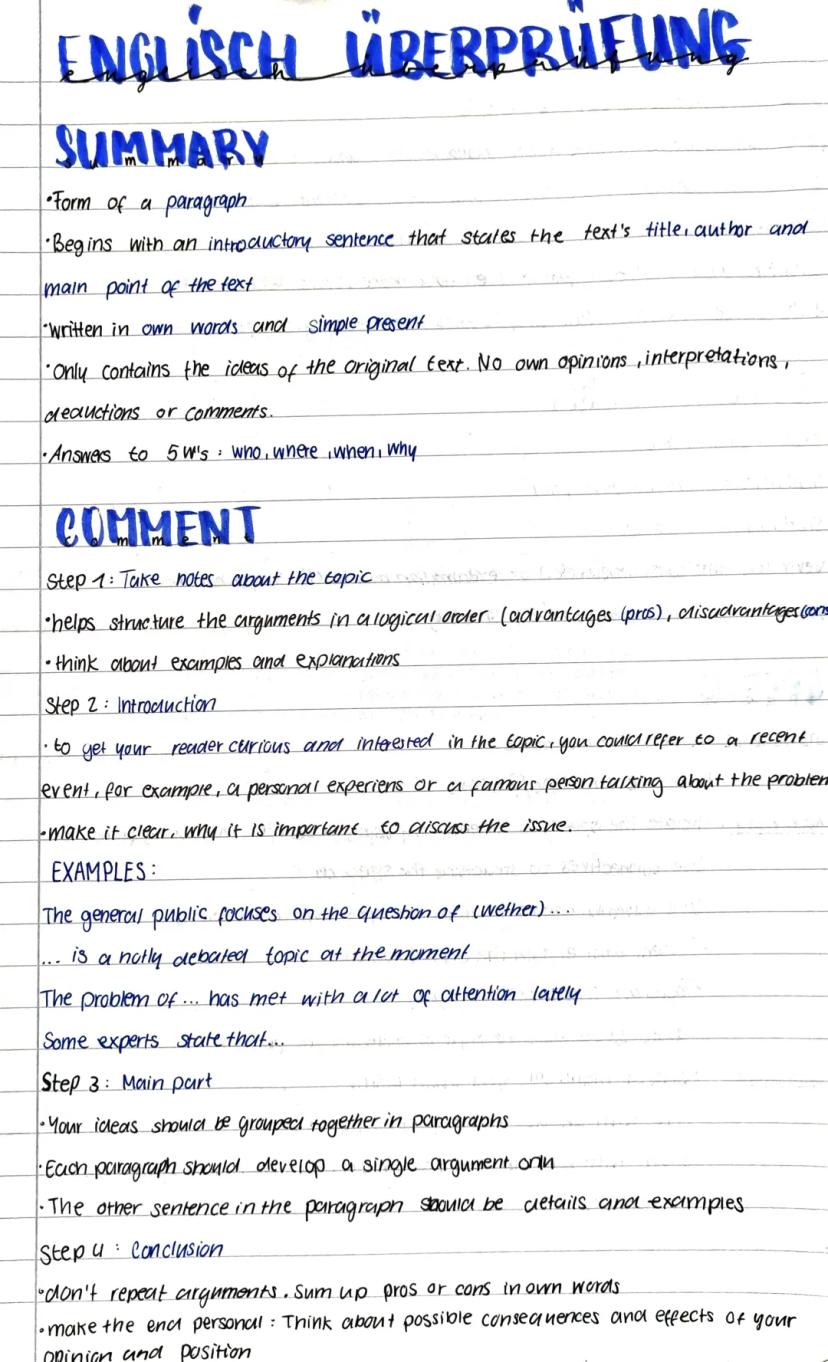 ENGLISCH ÜBERPRÜFUNG
englisch überprüfung
SUMMARY
summary
•Form of a paragraph
•Begins with an introductory sentence that states the text's title, author and
main point of the text
•written in own words and simple present
•Only contains the ideas of the original text. No own opinions, interpretations,
deductions or comments.
•Answers to 5 W's: who, where, when, why
COMMENT
comment
Step 1: Take notes about the topic
•helps structure the arguments in a logical order (advantages (pros), disadvantages (cons
•think about examples and explanations
Step 2: Introduction
•to get your reader curious and interested in the topic, you could refer to a recent
event, for example, a personal experiens or a famous person talking about the problem
•make it clear, why it is important to discuss the issue.
EXAMPLES:
The general public focuses on the question of (wether)...
... is a hotly debated topic at the moment
The problem of... has met with a lot of attention lately
Some experts state that...
Step 3: Main part
•Your ideas should be grouped together in paragraphs
•Each paragraph should develop a single argument only
•The other sentence in the paragraph should be details and examples
Step 4: Conclusion
•don't repeat arguments. Sum up pros or cons in own words
•make the end personal: Think about possible consequences and effects of your
opinion and position